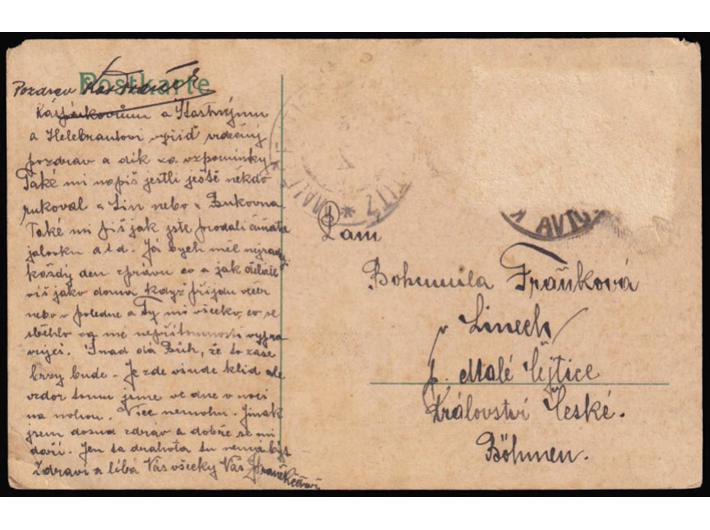 Postkarte
Pozdrav
a
a Helebrantovi vzdičný
pozdrav a dík za vzpomínky
Také mi napiš jestli ještě nekdo
rukoval z Lin nebo z Bukovna
Také mi piš jak jste prodali
jalovku a t d. Já bych měl nejradej
každý den zprávu co a jak děláte
víš jako doma když přijdu večer
nebo v poledne a Ty mi všecko, co se
sběhlo za mé nepřítomnosti vyprav
ujes. Snad dá Bůh, že to zase
brzy bude. Je zde všude klid ale
vzdor tomu jsme ve dne v noci
na nohou. Více nemohu. Jinak
jsem dosud zdráv a dobře se mi
daří. Jen ta drahota tu nemá být
Zdraví a líbá Vás všecky Váš
Paní
Bohumila Fraňková
v Linech
p. Malé Čejtice
Království České.
Böhmen.